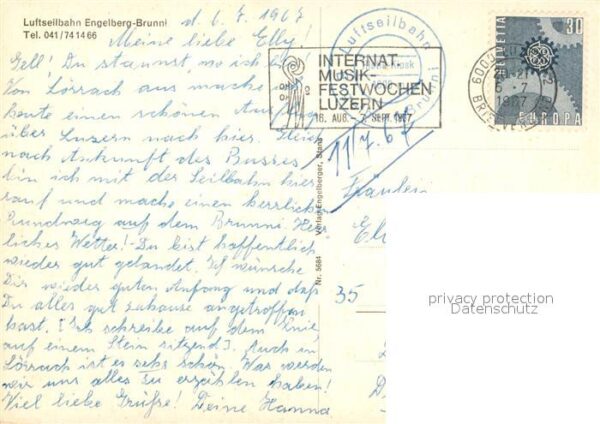 Luftseilbahn Engelberg-Brunni
Tel. 041/741466
d. 6. 7. 1967
Meine liebe Elly!
Gell! Du staunst, wo ich bin
Von Lörrach aus mache ich
heute einen schönen Ausflug
über Luzern nach hier. Gleich
nach Ankunft des Busses
bin ich mit der Seilbahn hier
rauf und mache einen herrlichen
Rundweg auf dem Brunni Herr-
liches Wetter! - Du bist hoffentlich
wieder gut gelandet. Ich wünsche
Dir wieder guten Anfang und daß
Du alles gut zuhause angetroffen
hast. (Ich schreibe auf dem Knie
auf einem Stein sitzend). Auch in
Lörrach ist es sehr schön. Was werden
wir uns alles zu erzählen haben!
Viel liebe Grüße! Deine Hanna
Nr. 5684 Verlag Engelberger, Stans
Luftseilbahn
Kiosk
Brunni
INTERNAT.
MUSIK-
FESTWOCHEN
LUZERN
16. AUG. - 7. SEPT. 1967
6000 LUZERN
20-21
6 7
1967
BRIEFVERSAND
HELVETIA 30
EUROPA
11/7. 67
Fräulein
35
privacy protection
Datenschutz